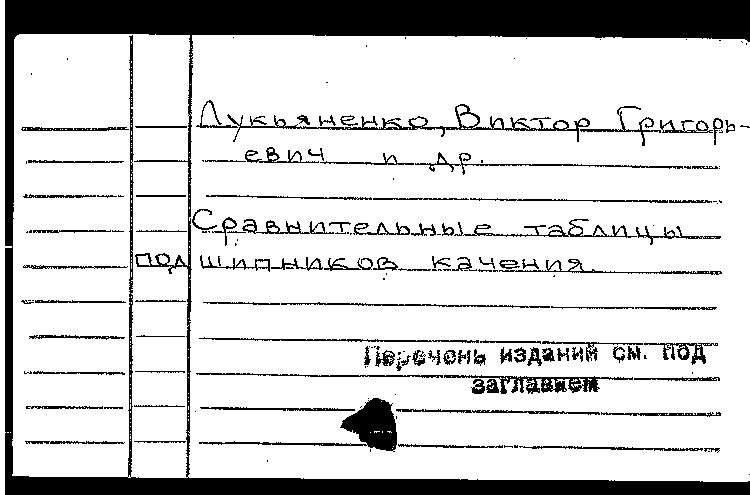 Лукьяненко, Виктор Григорь-
евич и др.
Сравнительные таблицы
подшипников качения.
Перечень изданий см. под
заглавием